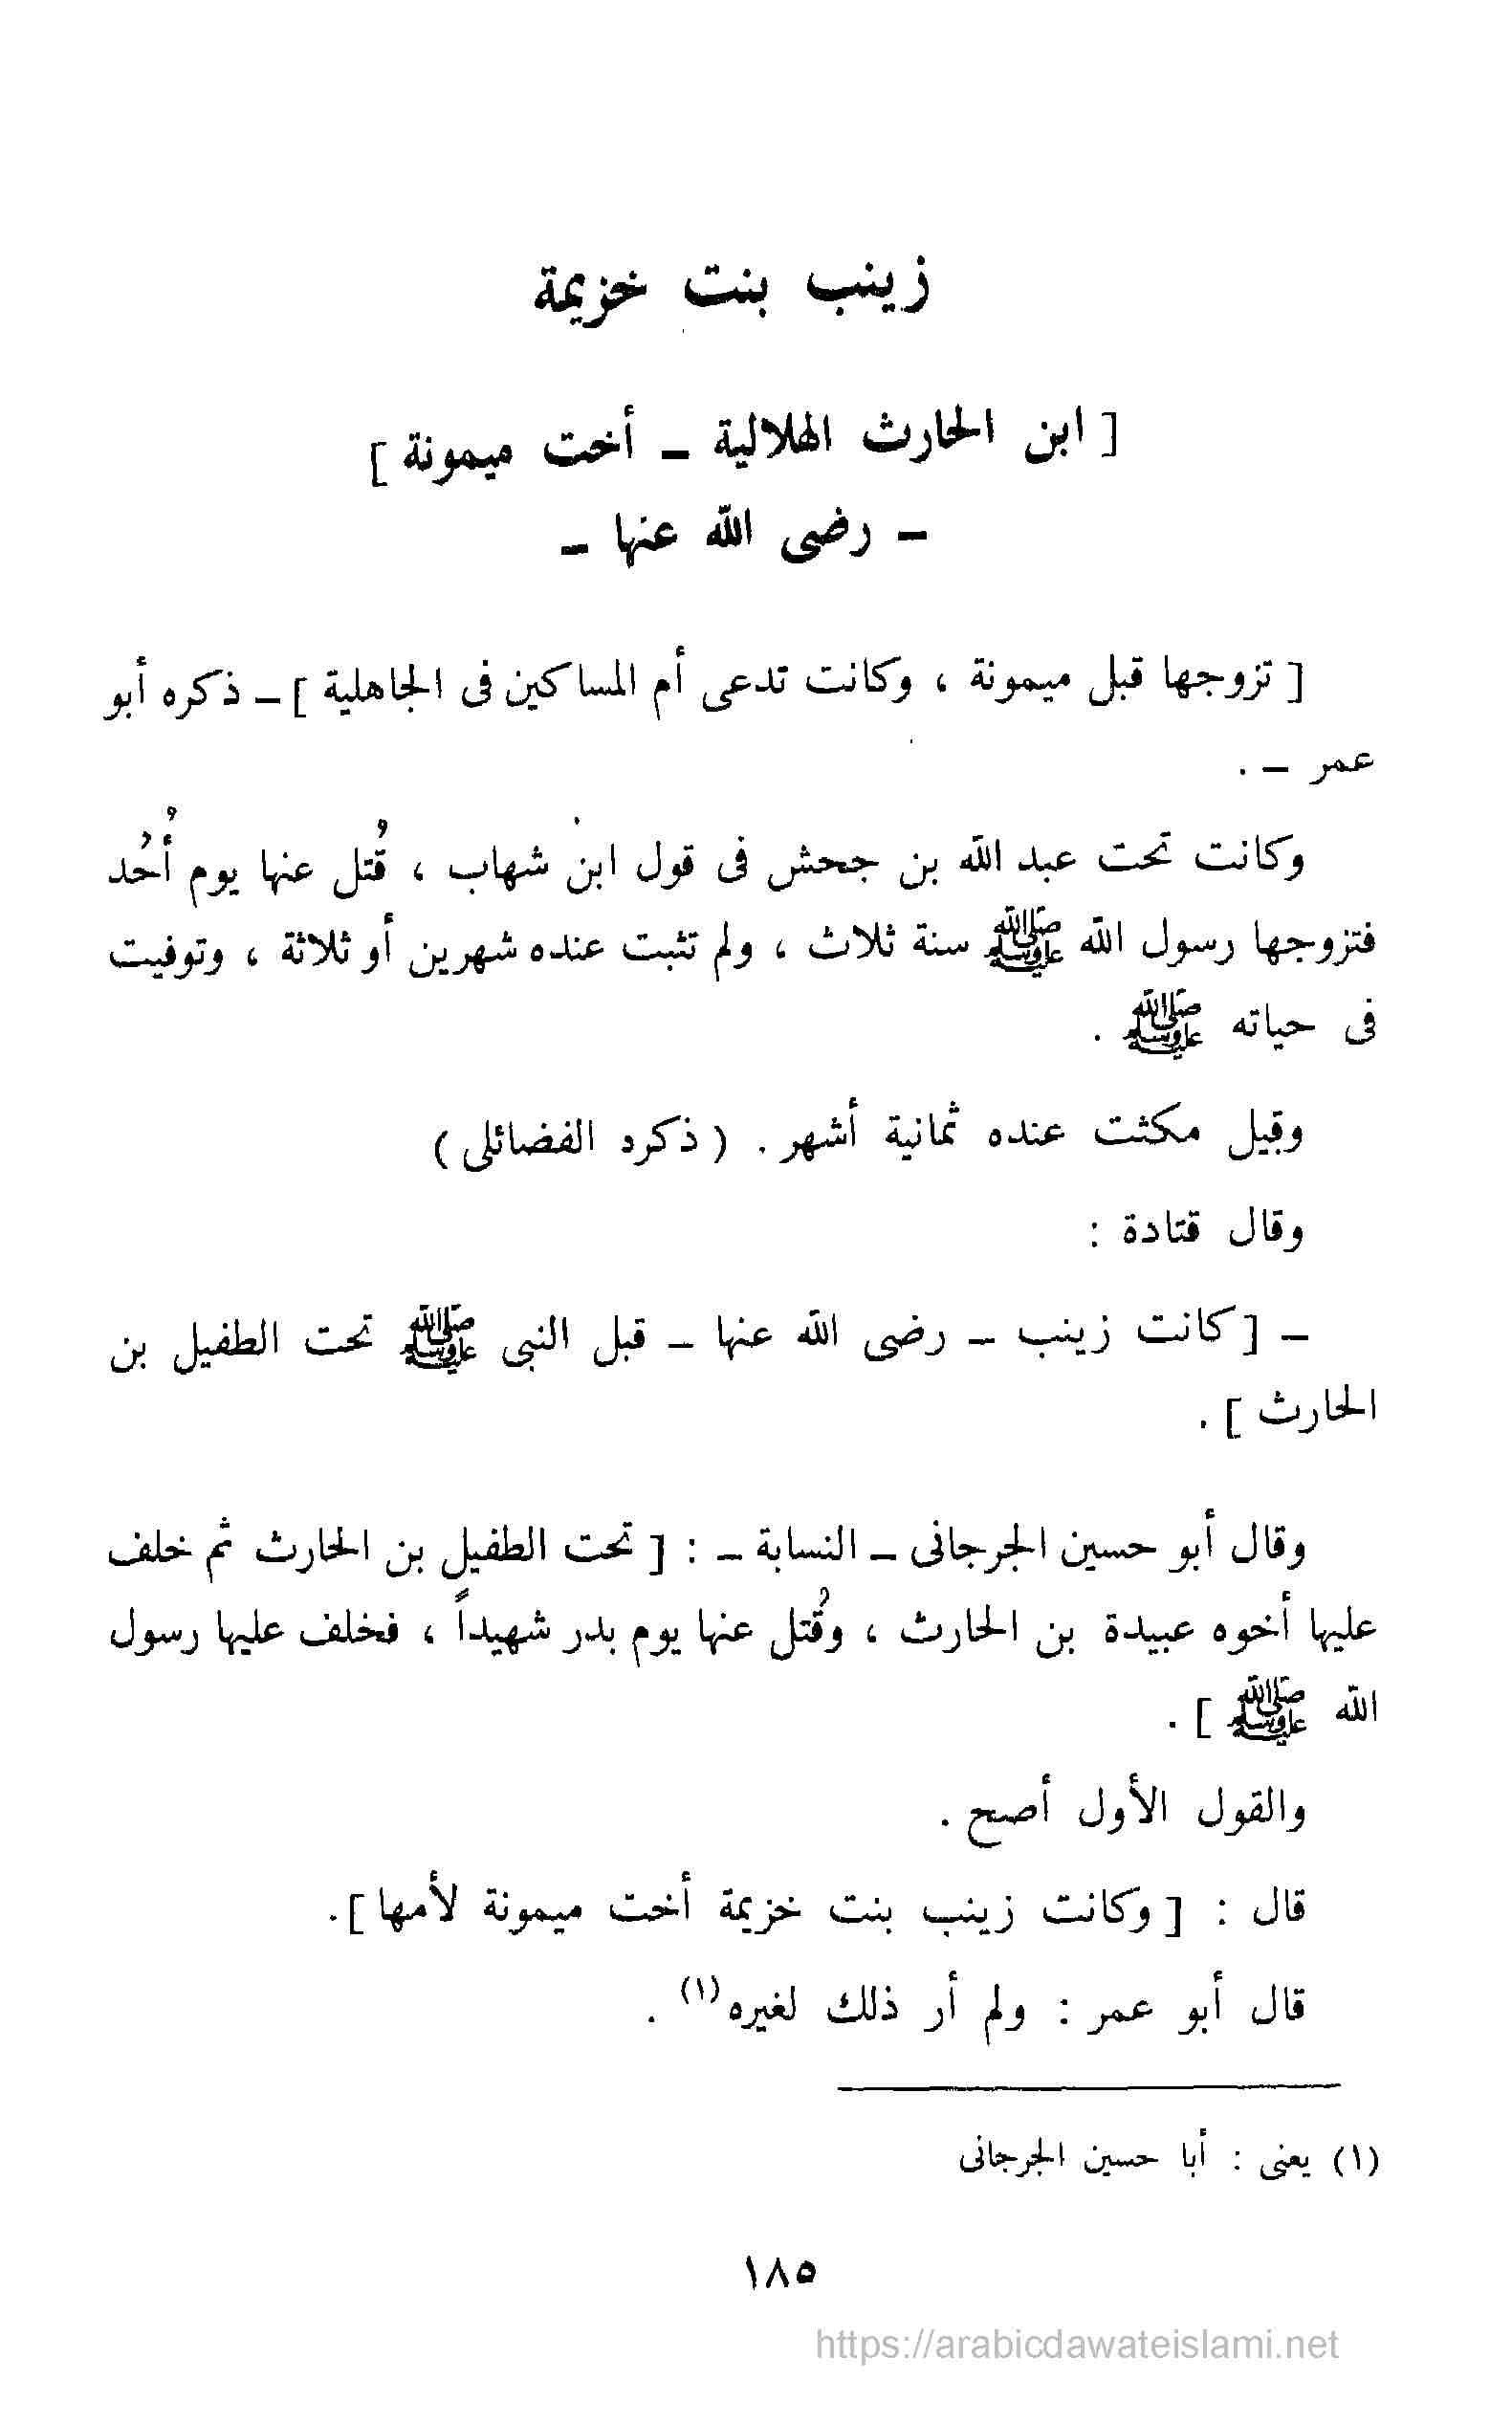 زينب بنت خزيمة
[ ابن الحارث الهلالية ـ أخت ميمونة ]
ـ رضى الله عنها ـ
[ تزوجها قبل ميمونة ، وكانت تدعى أم المساكين فى الجاهلية ] ـ ذكره أبو
عمر ـ .
وكانت تحت عبد الله بن جحش فى قول ابن شهاب ، قُتل عنها يوم أُحُد
فتزوجها رسول الله ﷺ سنة ثلاث ، ولم تثبت عنده شهرين أو ثلاثة ، وتوفيت
فى حياته ﷺ .
وقيل مكثت عنده ثمانية أشهر . ( ذكره الفضائلى )
وقال قتادة :
ـ [ كانت زينب ـ رضى الله عنها ـ قبل النبى ﷺ تحت الطفيل بن
الحارث ] .
وقال أبو حسين الجرجانى ـ النسابة ـ : [ تحت الطفيل بن الحارث ثم خلف
عليها أخوه عبيدة بن الحارث ، وقُتل عنها يوم بدر شهيداً ، فخلف عليها رسول
الله ﷺ ] .
والقول الأول أصح .
قال : [ وكانت زينب بنت خزيمة أخت ميمونة لأمها ] .
قال أبو عمر : ولم أر ذلك لغيره (١) .
(١) يعنى : أبا حسين الجرجانى
١٨٥
https://arabicdawateislami.net